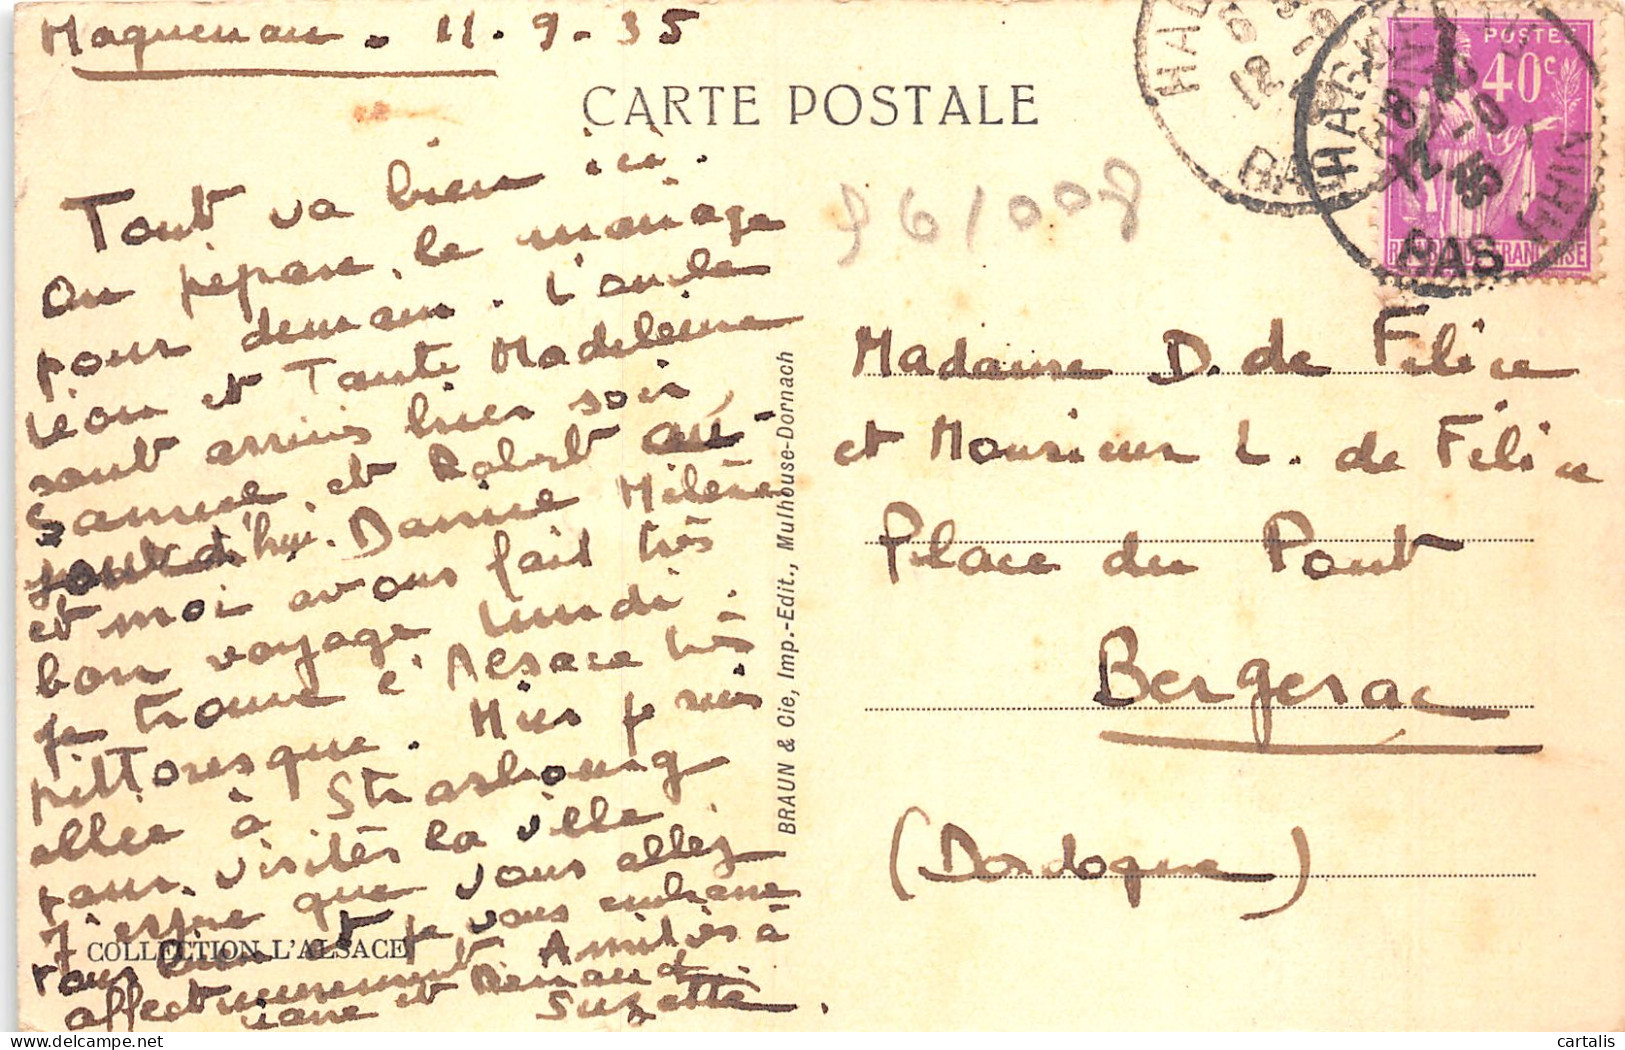 Haguenau. 11.9.35
CARTE POSTALE
Tout va bien ici.
On prépare le mariage
pour demain. L'oncle
Léon et Tante Madeleine
sont arrivés hier soir
Samuel et Robert au-
jourd'hui. Daniel Milène
et moi avons fait très
bon voyage lundi.
je trouve l'Alsace très
pittoresque. Hier je suis
allée à Strasbourg
pour visiter la ville
J'espère que vous allez
tous bien et je vous embrasse
affectueusement Amitiés à
et Renaud
Suzette.
COLLECTION L'ALSACE
BRAUN & Cie, Imp.-Edit., Mulhouse-Dornach
96/008
POSTES
40c
REPUBLIQUE FRANÇAISE
HAGUENAU
BAS RHIN
Madame D. de Felice
et Monsieur L. de Félice
Place du Pont
Bergerac
(Dordogne)
cartalis